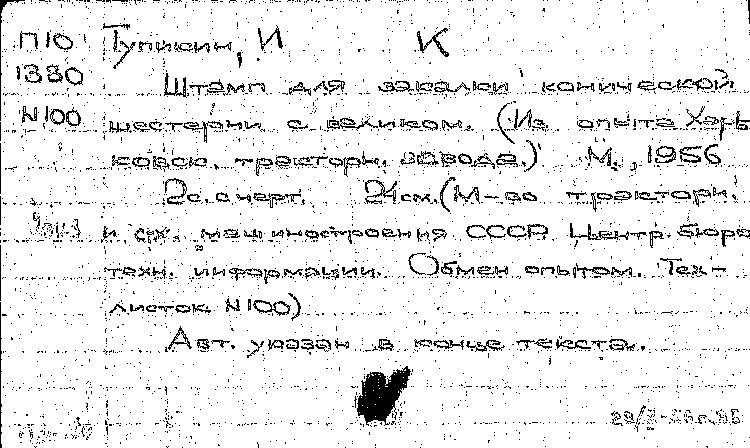 П10 Туписин, И К
1330 Штамп для закалки конической
N100 шестерни с валиком. (Из опыта Харь-
ковск. тракторн. завода.) М., 1956
2с. с черт. 24 см. (М-во тракторн.
и с/х. машиностроения СССР. Центр. бюро
техн. информации. Обмен опытом. Тех-
листок N100)
Авт. указан в конце текста.